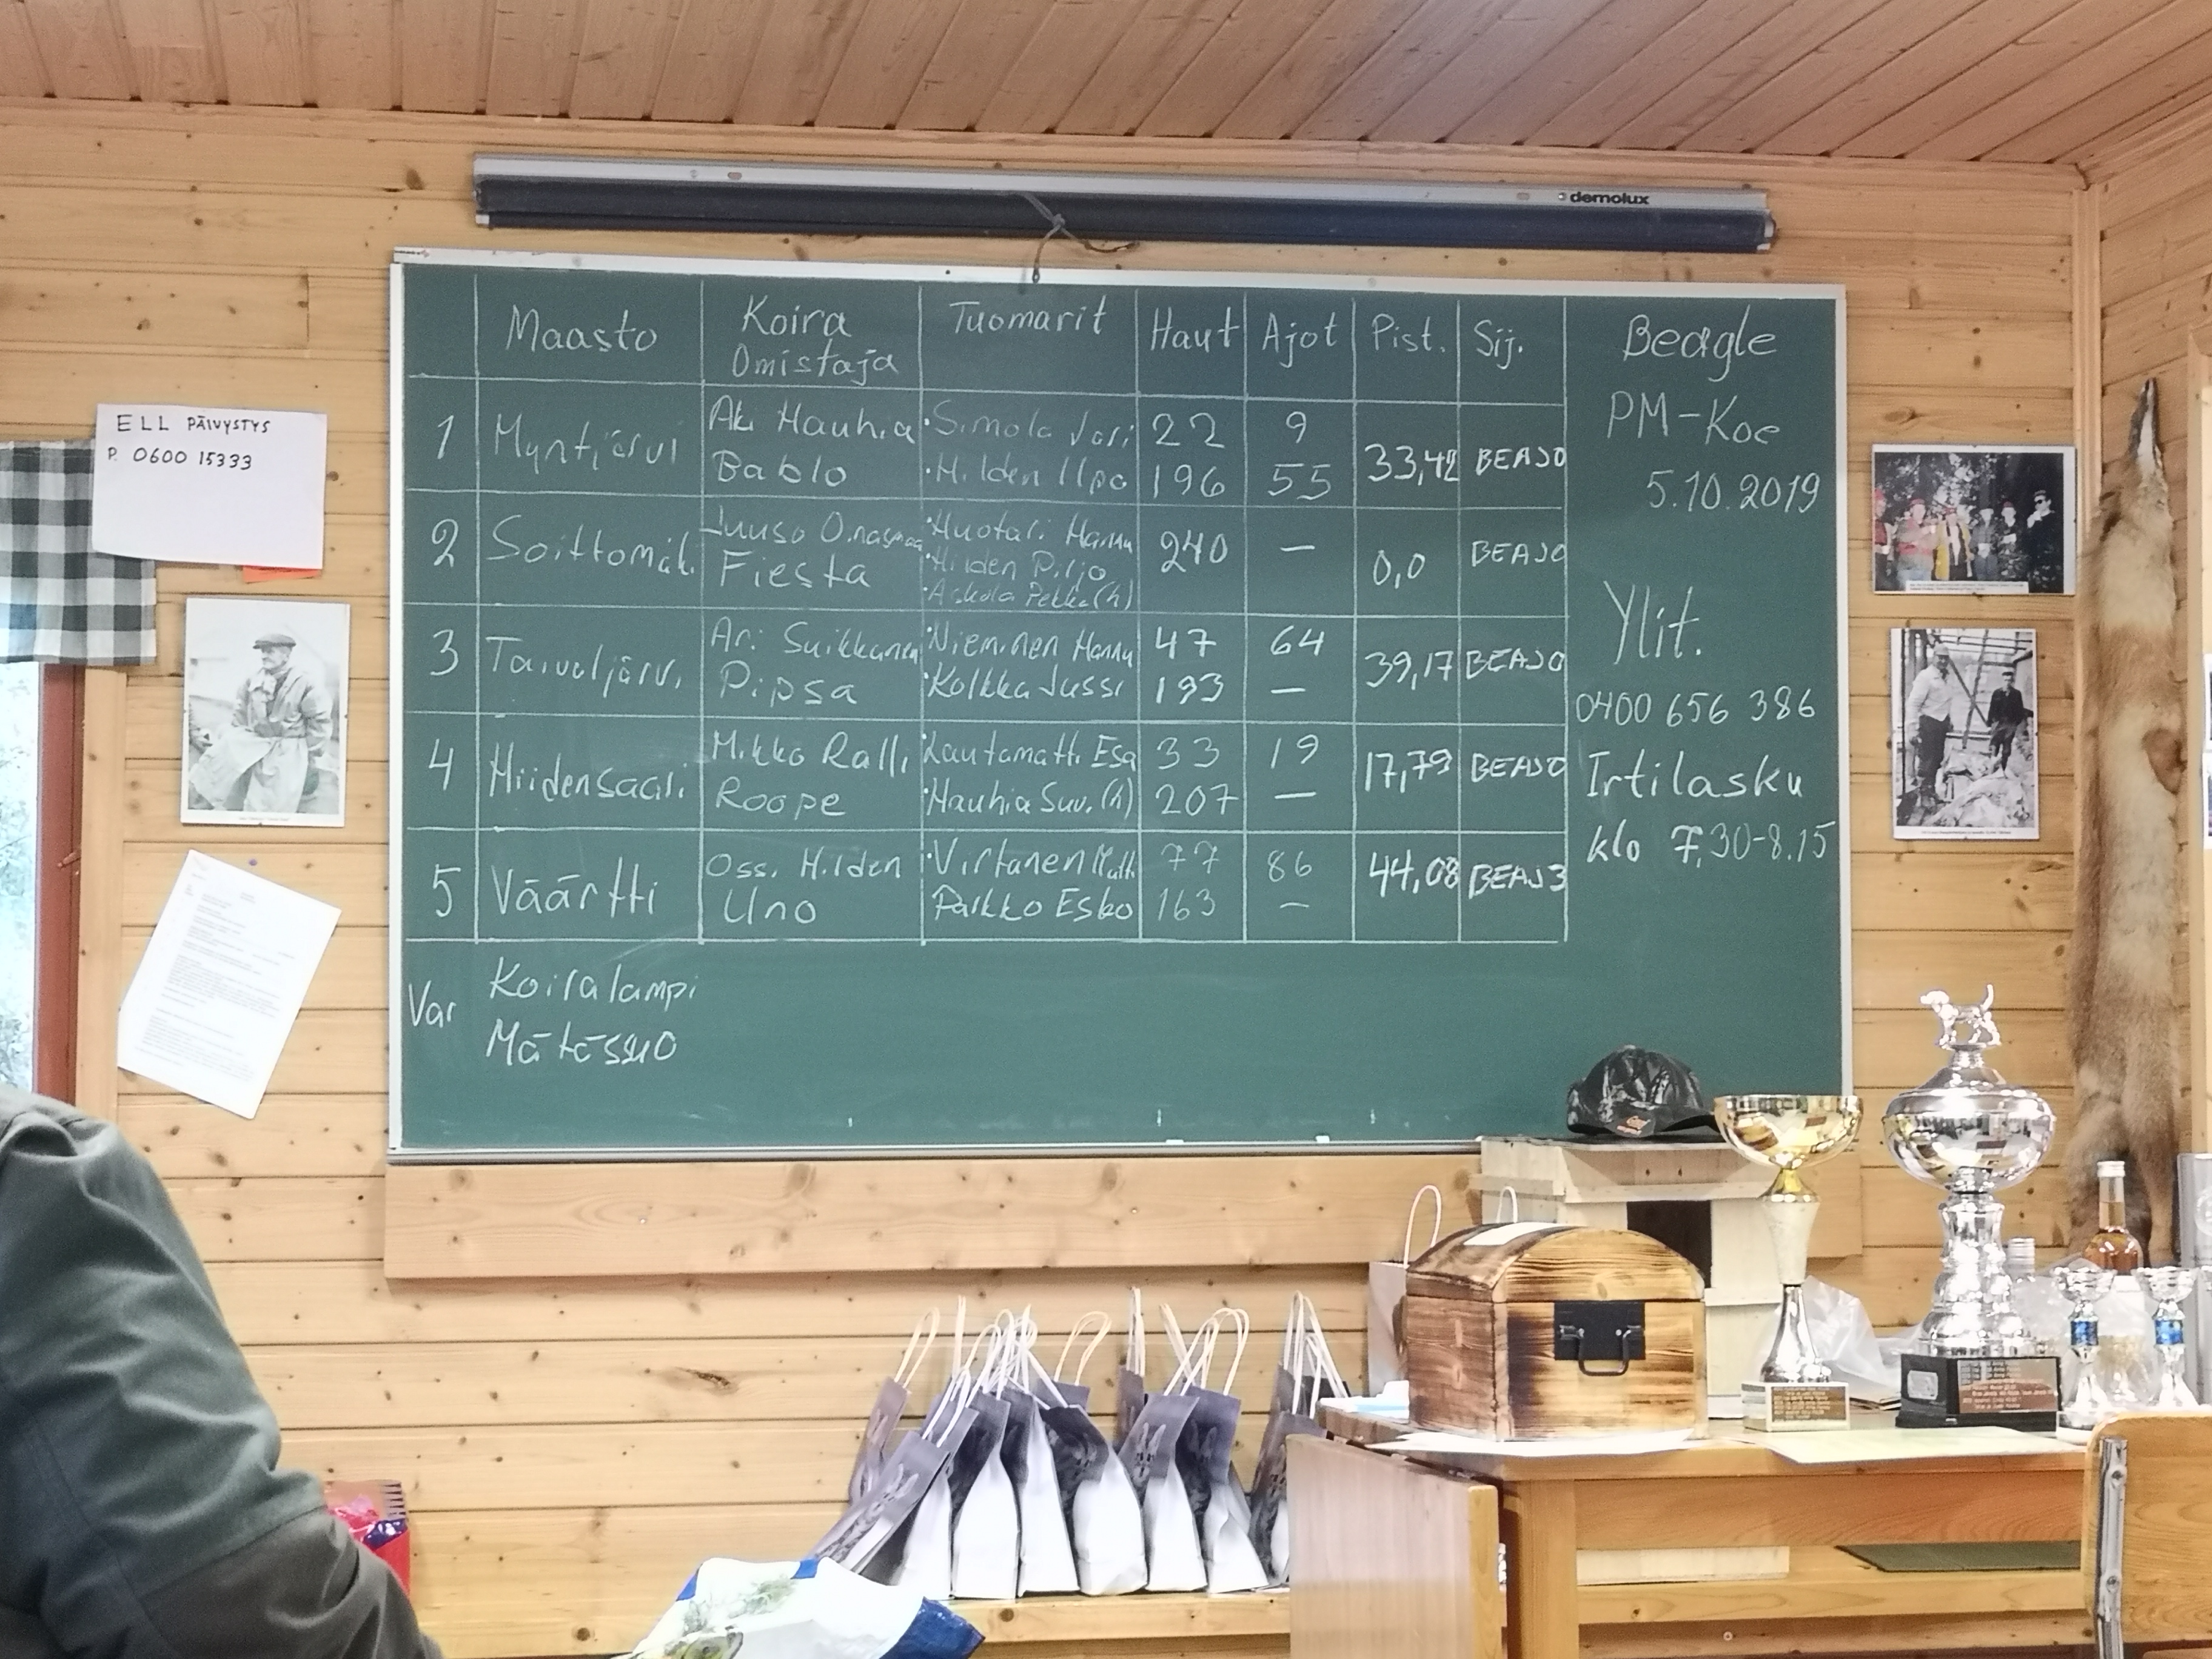 demolux
Maasto Koira Tuomarit Haut Ajot Pist. Sij.
Omistaja
1 Myntjärvi Aki Hauhia ·Simola Jari 22 9 33,42 BEAJ0
Bablo ·Hilden Ilpo 196 55
2 Soittomäki Juuso Oinasmaa ·Huotari Hannu 240 — 0,0 BEAJ0
Fiesta ·Hilden Pirjo
·Askola Pekka (h)
3 Taivaljärvi Ari Suikkanen ·Nieminen Hannu 47 64 39,17 BEAJ0
Pipsa ·Kolkka Jussi 193 —
4 Hiidensaari Mikko Ralli ·Lautamatti Esa 33 19 17,79 BEAJ0
Roope ·Hauhia Suvi (h) 207 —
5 Väärtti Ossi Hilden ·Virtanen Matti 77 86 44,08 BEAJ3
Uno Parkko Esko 163 —
Var Koiralampi
Mätässuo
Beagle
PM-Koe
5.10.2019
Ylit.
0400 656 386
Irtilasku
klo 7.30-8.15
ELL PÄIVYSTYS
P. 0600 15333